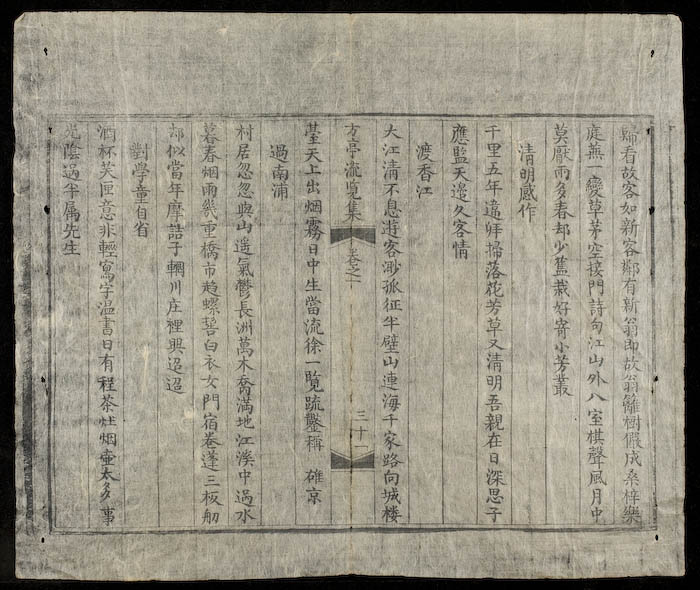 歸看故客如新客鄰有新翁即故翁籬樹儼成桑梓樂
庭蕪一變草茅空接門詩句江山外八室棋聲風月中
莫厭雨多春却少蕉栽好寄小芳叢
清明感作
千里五年違拜掃落花芳草又清明吾親在日深思子
應監天邊久客情
渡香江
大江清不息遊客渺孤征半壁山連海千家路向城樓
方亭流覽集
卷之一
三十一
臺天上出烟霧日中生當流徐一覽疏鑿稱 雄京
過南浦
村居忽忽與山遥氣鬱長洲萬木喬滿地江溪中過水
暮春烟雨幾重橋市趋螺髻白衣女門宿卷蓬三板舠
却似當年摩詰子輞川庄裡興迢迢
對學童自省
酒杯芙匣意非輕寫字温書日有程茶灶烟壷太多事
光陰過半属先生